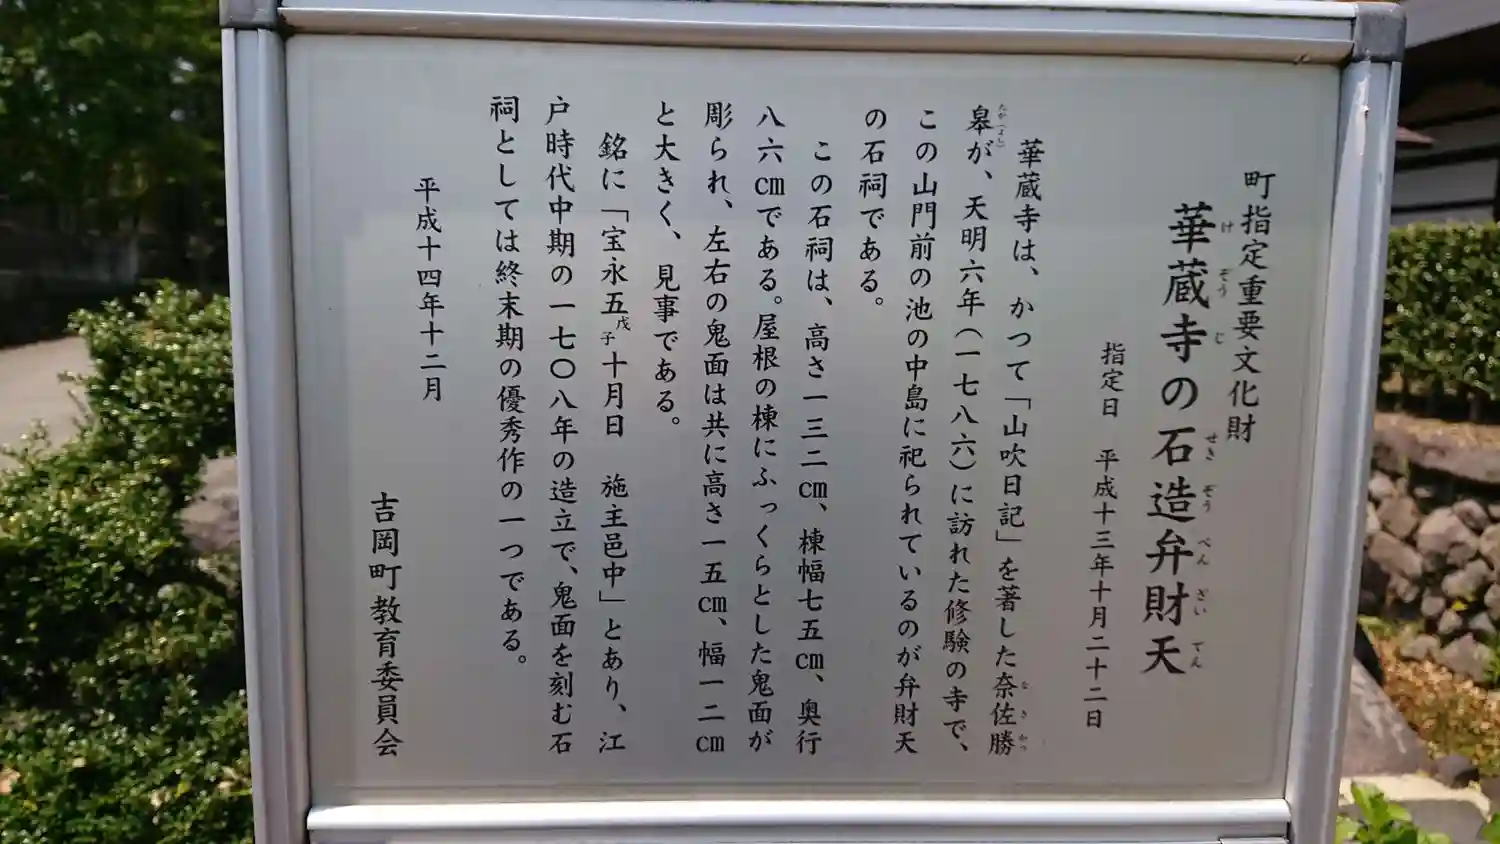 町指定重要文化財
華蔵寺の石造弁財天
けぞうじ せきぞうべんざいてん
指定日　平成十三年十月二十二日
華蔵寺は、かつて「山吹日記」を著した奈佐勝
なさかつ
皋が、天明六年（一七八六）に訪れた修験の寺で、
この山門前の池の中島に祀られているのが弁財天
の石祠である。
この石祠は、高さ一三二cm、棟幅七五cm、奥行
八六cmである。屋根の棟にふっくらとした鬼面が
彫られ、左右の鬼面は共に高さ一五cm、幅一二cm
と大きく、見事である。
銘に「宝永五戊子十月日　施主邑中」とあり、江
戸時代中期の一七〇八年の造立で、鬼面を刻む石
祠としては終末期の優秀作の一つである。
平成十四年十二月
吉岡町教育委員会